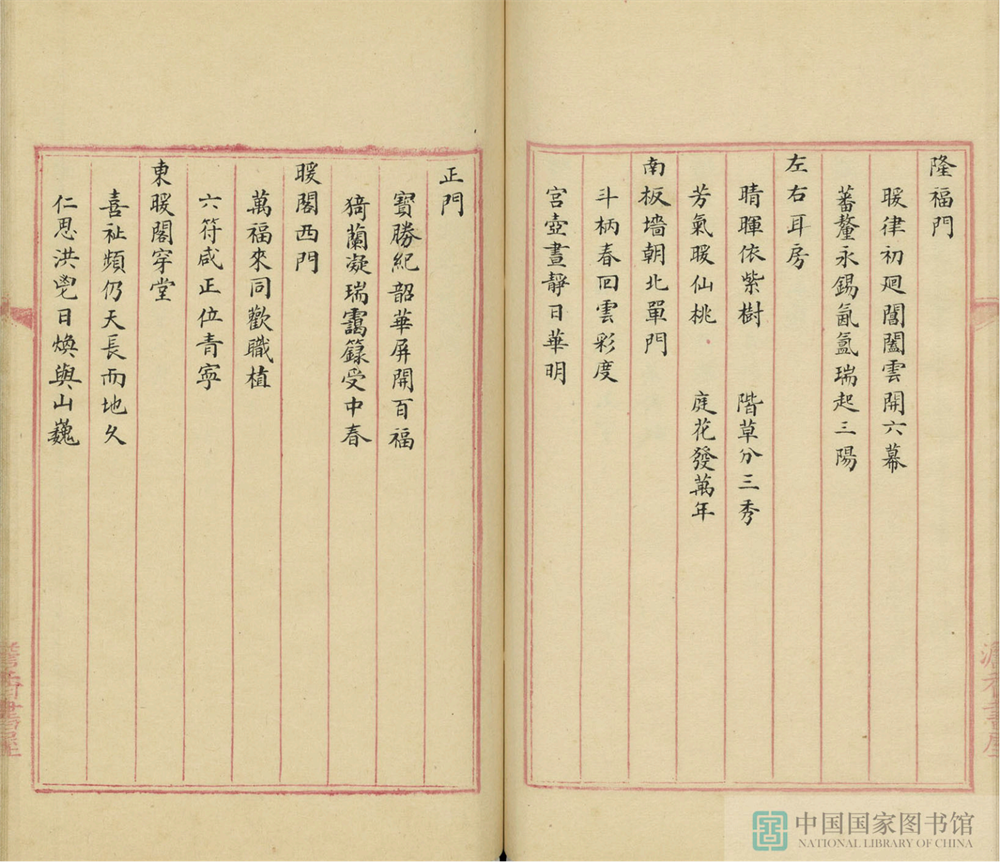 隆福門
暖律初廻閶闔雲開六幕
蕃釐永錫氤氳瑞起三陽
左右耳房
晴暉依紫樹　階草分三秀
芳氣暖仙桃　庭花發萬年
南板墻朝北單門
斗柄春回雲彩度
宮壺晝靜日華明
正門
寳勝紀韶華屏開百福
猗蘭凝瑞靄籙受中春
暖閣西門
萬福來同歡職植
六符咸正位青寧
東暖閣穿堂
喜祉頻仍天長而地久
仁恩洪鬯日煥與山巍
中国国家图书馆
NATIONAL LIBRARY OF CHINA